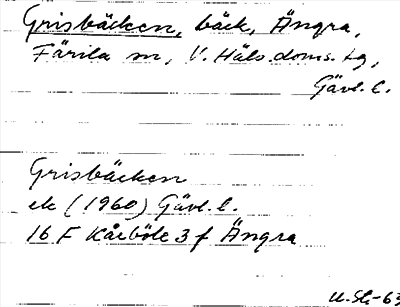 Grisbäcken, bäck, Ängra,
Färila sn, V. Häls. doms. tg,
Gävl. l.
Grisbäcken
ek (1960) Gävl. l.
16 F Kårböle 3 f Ängra